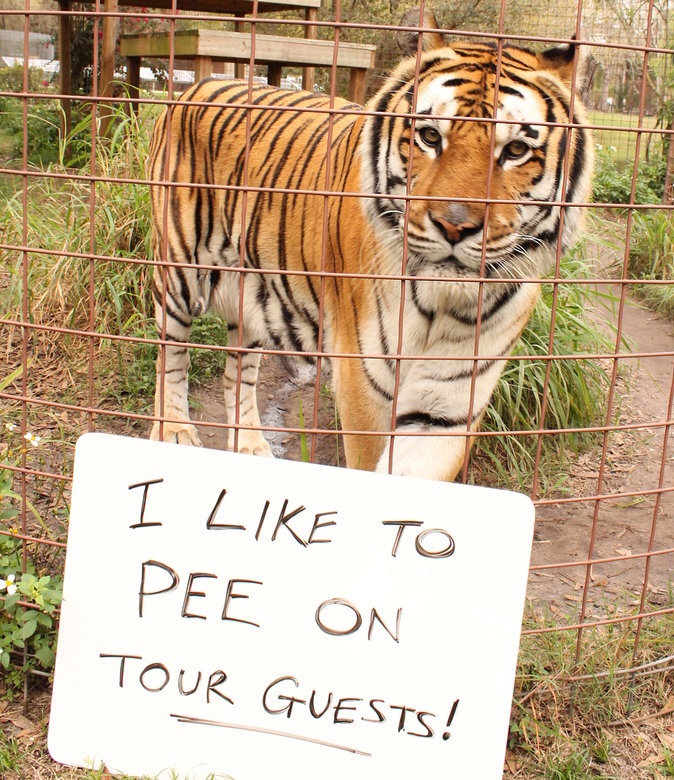 I LIKE TO
PEE ON
TOUR GUESTS!